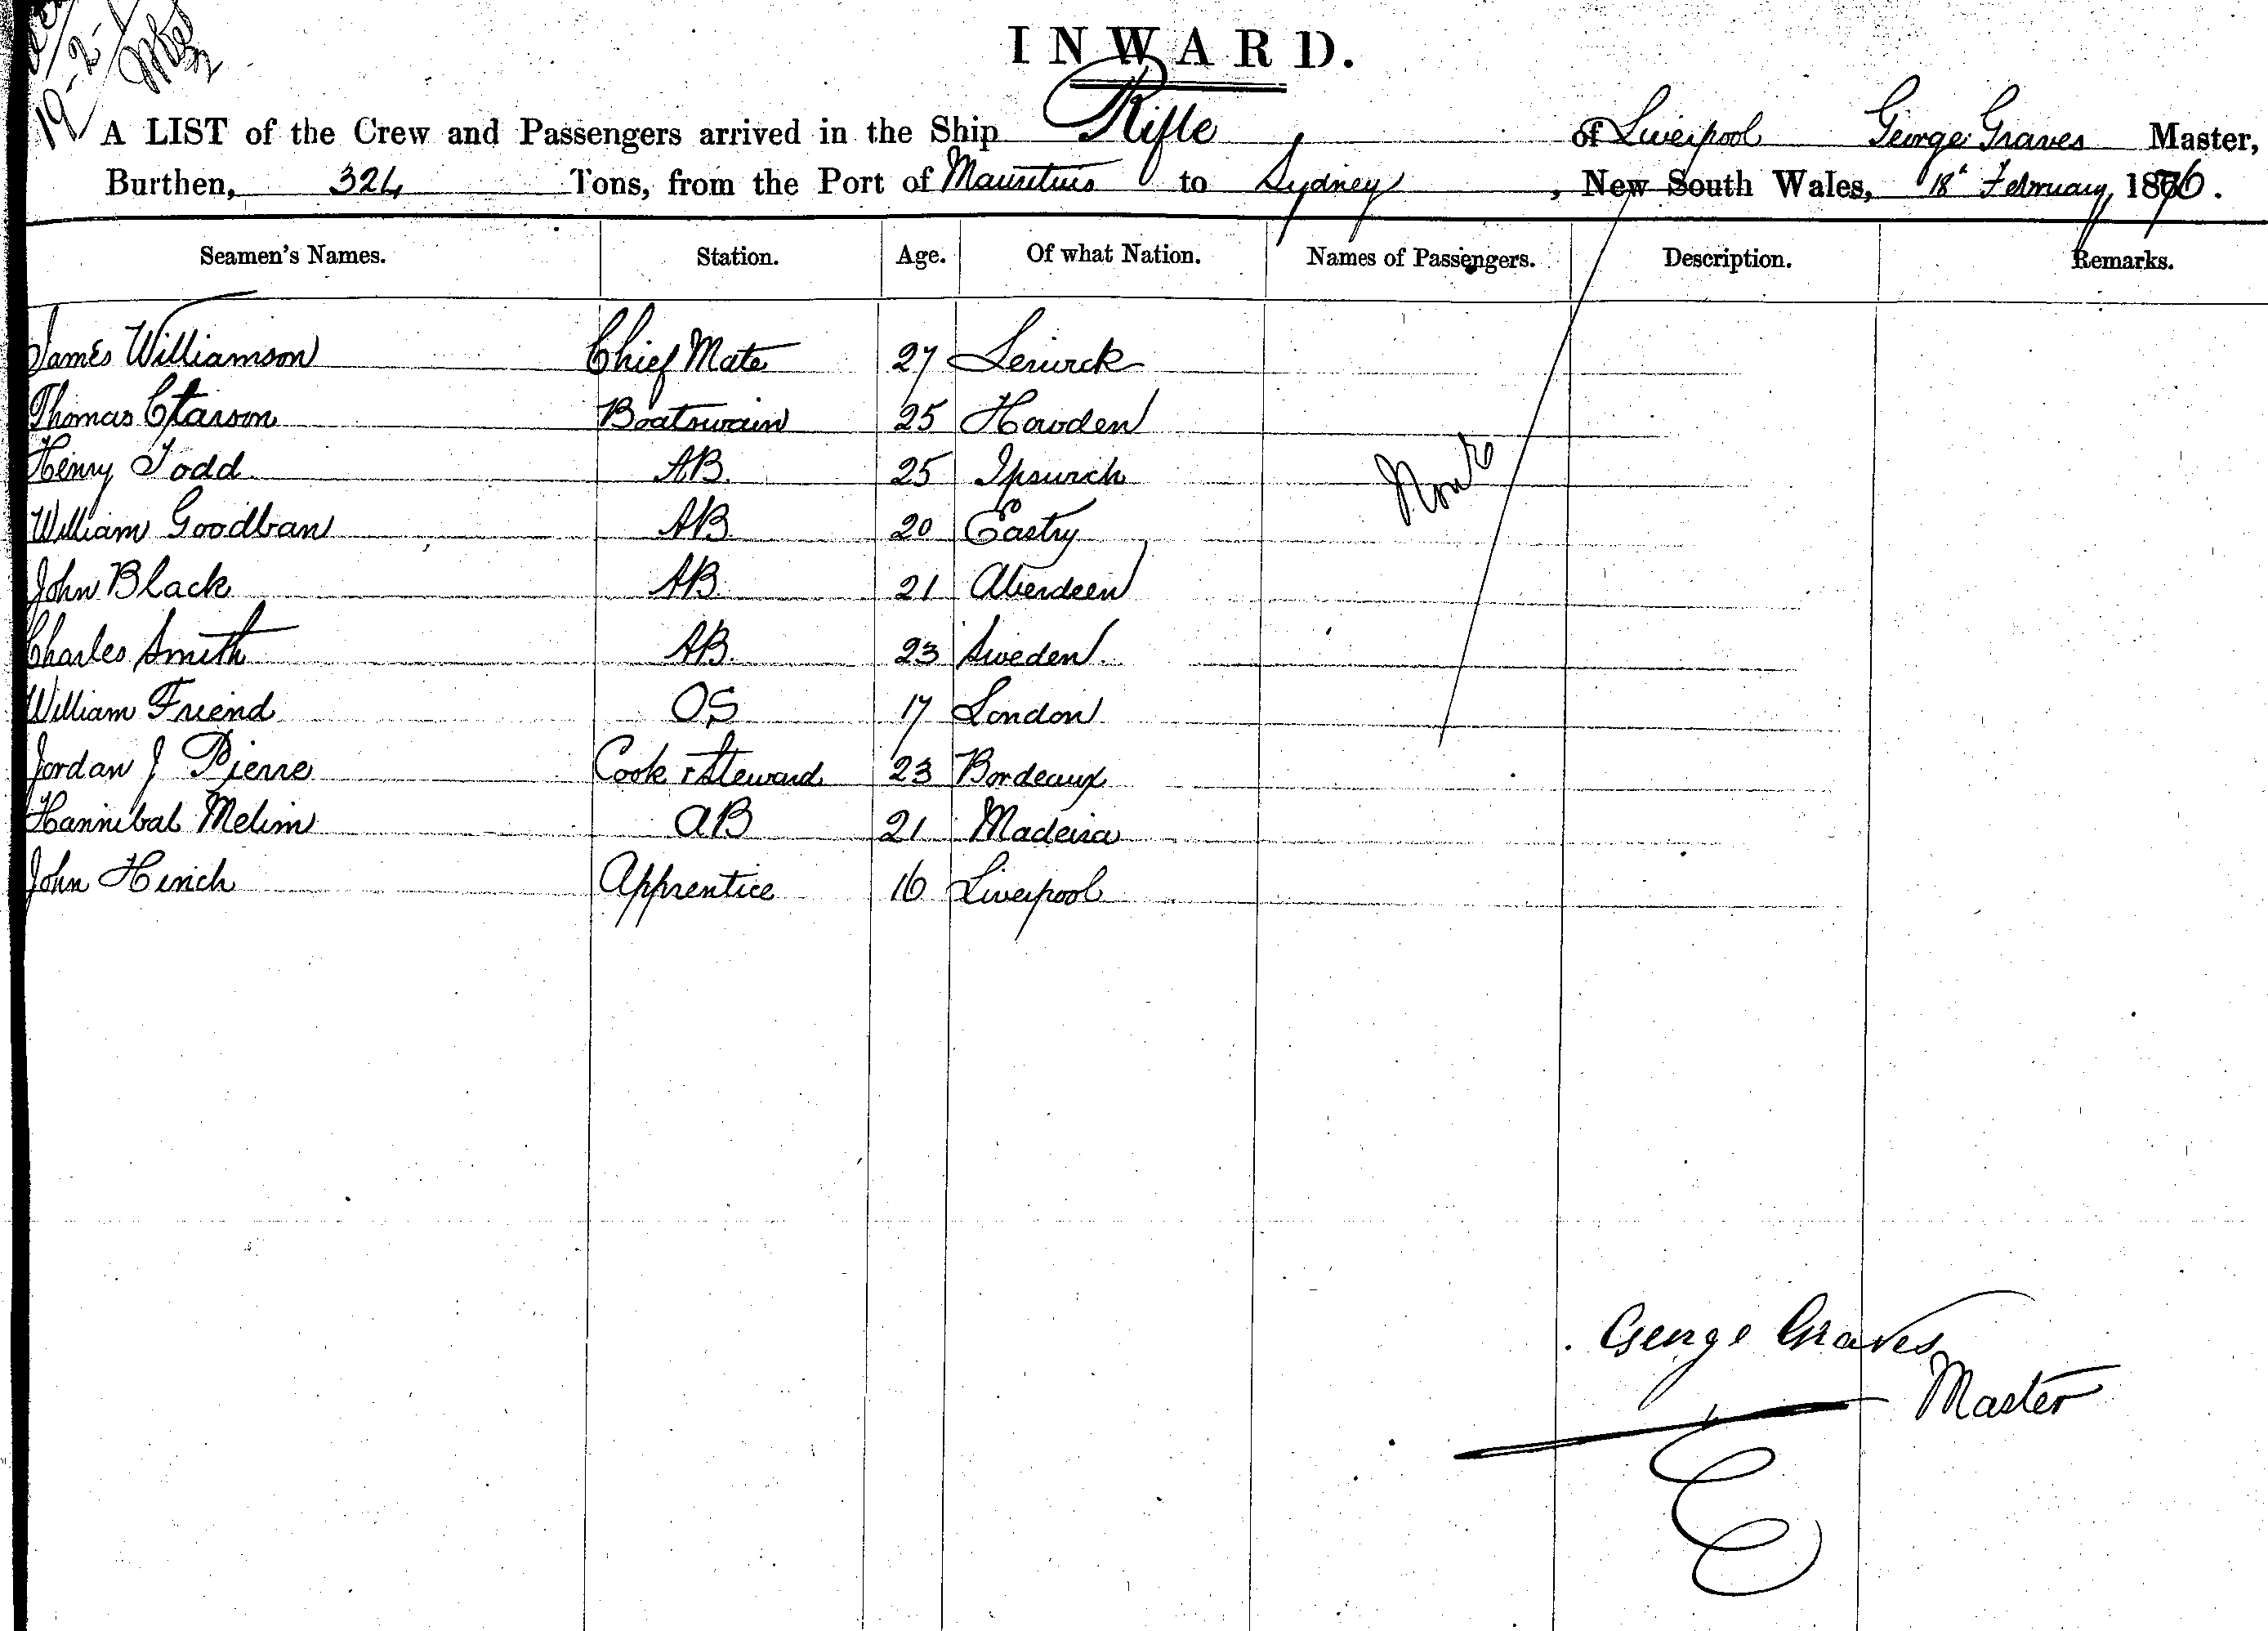 19-2-
INWARD.
A LIST of the Crew and Passengers arrived in the Ship Rifle of Liverpool George Graves Master,
Burthen, 324 Tons, from the Port of Mauritius to Sydney, New South Wales, 18th February, 1876.
Seamen's Names. Station. Age. Of what Nation. Names of Passengers. Description. Remarks.
James Williamson Chief Mate 27 Lerwick
Thomas Boatswain 25 Howden
Henry Todd AB. 25 Ipswich
William Goodban AB. 20 Eastry
John Black AB. 21 Aberdeen
Charles Smith AB. 23 Sweden.
William Friend OS 17 London
Jordan J Pierre Cook & Steward 23 Bordeaux
Hannibal Melim AB 21 Madeira
John Hinch Apprentice 16 Liverpool
None
George Graves
Master